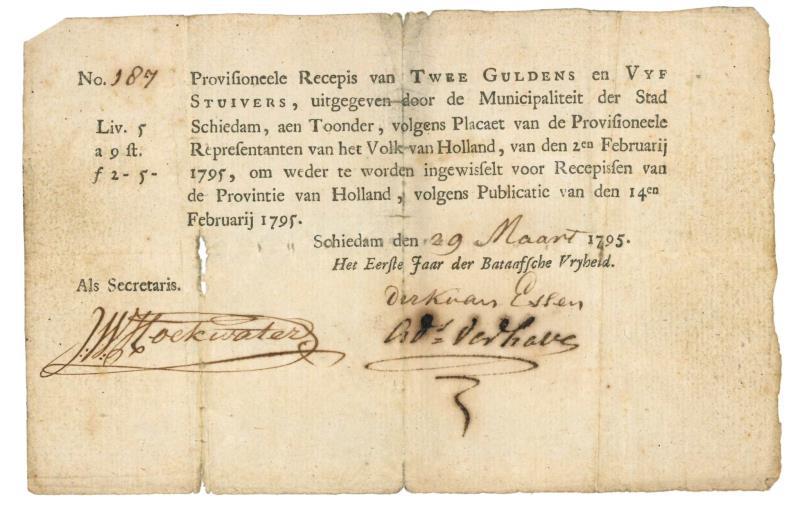 No. 187
Provisioneele Recepis van TWEE GULDENS en VYF
STUIVERS, uitgegeven door de Municipaliteit der Stad
Schiedam, aen Toonder, volgens Placaet van de Provisioneele
Representanten van het Volk van Holland, van den 2en Februarij
1795, om weder te worden ingewisselt voor Recepissen van
de Provintie van Holland, volgens Publicatie van den 14en
Februarij 1795.
Liv. 5
a 9 st.
f 2-5-
Schiedam den 29 Maart 1795.
Het Eerste Jaar der Bataafsche Vryheid.
Als Secretaris.
Dirk van Essen
Hoekwater
Verhave